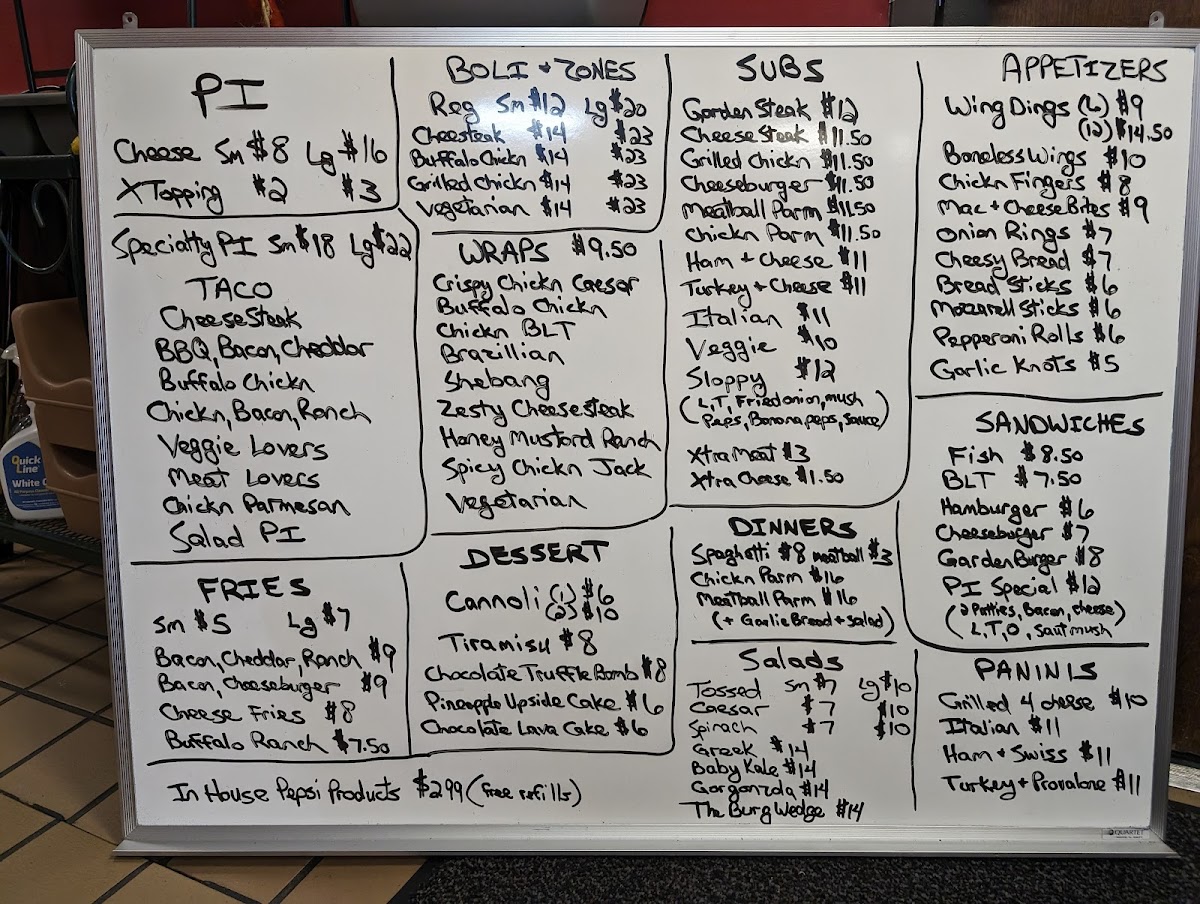 PI
Cheese Sm $8 Lg $16
X Topping $2 $3
Specialty PI Sm $18 Lg $22
TACO
Cheese Steak
BBQ, Bacon, Cheddar
Buffalo Chickn
Chickn, Bacon, Ranch
Veggie Lovers
Meat Lovers
Chickn Parmesan
Salad PI
FRIES
Sm $5 Lg $7
Bacon, Cheddar, Ranch $9
Bacon, Cheeseburger $9
Cheese Fries $8
Buffalo Ranch $7.50
BOLI + ZONES
Reg Sm $12 Lg $20
Cheesteak $14 $23
Buffalo Chickn $14 $23
Grilled Chickn $14 $23
Vegetarian $14 $23
WRAPS $9.50
Crispy Chickn Caesar
Buffalo Chickn
Chickn BLT
Brazillian
Shebang
Zesty Cheesesteak
Honey Mustard Ranch
Spicy Chickn Jack
Vegetarian
DESSERT
Cannoli (1) $6
(2) $10
Tiramisu $8
Chocolate Truffle Bomb $8
Pineapple Upside Cake $6
Chocolate Lava Cake $6
In House Pepsi Products $2.99 (free refills)
SUBS
Garden Steak $12
Cheese Steak $11.50
Grilled Chickn $11.50
Cheeseburger $11.50
Meatball Parm $11.50
Chickn Parm $11.50
Ham + Cheese $11
Turkey + Cheese $11
Italian $11
Veggie $10
Sloppy $12
(L, T, Fried onion, mush
Peps, Banana peps, sauce)
Xtra Meat $3
Xtra Cheese $1.50
DINNERS
Spaghetti $8 meatball $3
Chickn Parm $16
Meatball Parm $16
(+ Garlic Bread + Salad)
Salads
Tossed Sm $7 Lg $10
Caesar $7 $10
Spinach $7 $10
Greek $14
Baby Kale $14
Gorgonzola $14
The Burg Wedge $14
APPETIZERS
Wing Dings (6) $9
(12) $14.50
Boneless Wings $10
Chickn Fingers $8
Mac + Cheese Bites $9
Onion Rings $7
Cheesy Bread $7
Bread Sticks $6
Mozzarell Sticks $6
Pepperoni Rolls $6
Garlic Knots $5
SANDWICHES
Fish $8.50
BLT $7.50
Hamburger $6
Cheeseburger $7
Garden Burger $8
PI Special $12
(2 Patties, Bacon, cheese)
(L, T, O, Saut mush
PANINIS
Grilled 4 cheese $10
Italian $11
Ham + Swiss $11
Turkey + Provalone $11
QUARTET
Quick
Line
White